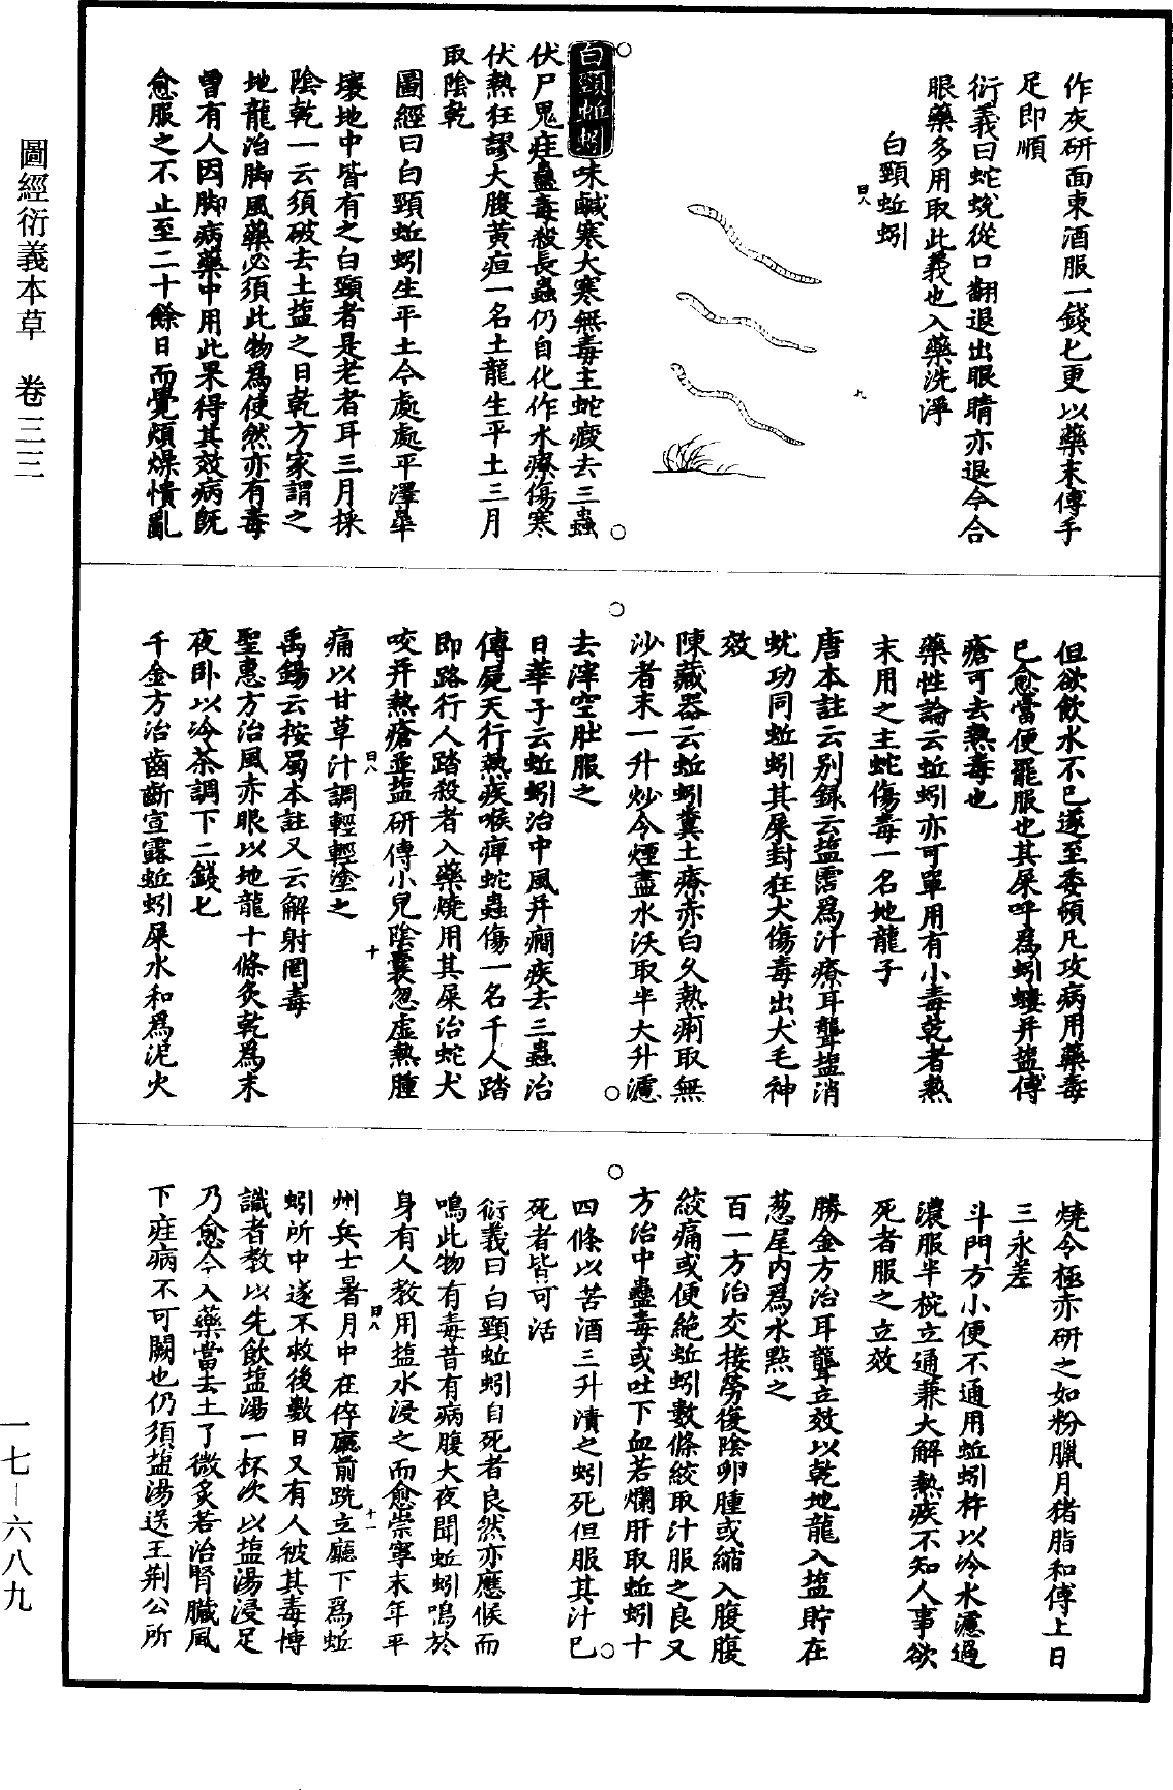 作灰研面東酒服一錢匕更以藥末傅手
足即順
衍義曰蛇蛻從口翻退出眼睛亦退今合
眼藥多用取此義也入藥洗淨
白頸蚯蚓
曰八
九
白頸蚯蚓味鹹寒大寒無毒主蛇瘕去三蟲
伏尸鬼疰蠱毒殺長蟲仍自化作水療傷寒
伏熱狂謬大腹黃疸一名土龍生平土三月
取陰乾
圖經曰白頸蚯蚓生平土今處處平澤皐
壤地中皆有之白頸者是老者耳三月採
陰乾一云須破去土塩之日乾方家謂之
地龍治脚風藥必須此物爲使然亦有毒
曾有人因脚病藥中用此果得其效病旣
愈服之不止至二十餘日而覺煩燥憒亂
但欲飲水不已遂至委頓凡攻病用藥毒
已愈當便罷服也其屎呼爲蚓螻并塩傅
瘡可去熱毒也
藥性論云蚯蚓亦可單用有小毒乾者熱
末用之主蛇傷毒一名地龍子
唐本註云別錄云塩霑爲汁療耳聾塩消
蚘功同蚯蚓其屎封狂犬傷毒出犬毛神
效
陳藏器云蚯蚓糞土療赤白久熱痢取無
沙者末一升炒令煙盡水沃取半大升濾
去滓空肚服之
日華子云蚯蚓治中風并癎疾去三蟲治
傳屍天行熱疾喉痺蛇蟲傷一名千人踏
即路行人踏殺者入藥燒用其屎治蛇犬
咬并熱瘡並塩研傅小兒陰囊忽虛熱腫
痛以甘草汁調輕輕塗之
曰八
十
禹錫云按蜀本註又云解射罔毒
聖惠方治風赤眼以地龍十條炙乾爲末
夜卧以冷茶調下二錢匕
千金方治齒齗宣露蚯蚓屎水和爲泥火
燒令極赤研之如粉臘月猪脂和傅上日
三永差
斗門方小便不通用蚯蚓杵以冷水濾過
濃服半椀立通兼大解熱疾不知人事欲
死者服之立效
勝金方治耳聾立效以乾地龍入塩貯在
葱尾内爲水點之
百一方治交接勞復陰卵腫或縮入腹腹
絞痛或便絶蚯蚓數條絞取汁服之良又
方治中蠱毒或吐下血若爛肝取蚯蚓十
四條以苦酒三升漬之蚓死但服其汁已
死者皆可活
衍義曰白頸蚯蚓自死者良然亦應候而
鳴此物有毒昔有病腹大夜聞蚯蚓鳴於
身有人教用塩水浸之而愈崇寧末年平
曰八
十一
州兵士暑月中在倅廳前跣立廳下爲蚯
蚓所中遂不救後數日又有人被其毒博
識者教以先飲塩湯一杯次以塩湯浸足
乃愈今入藥當去土了微炙若治腎臟風
下疰病不可闕也仍須塩湯送王荆公所
圖經衍義本草　卷三三
一七—六八九